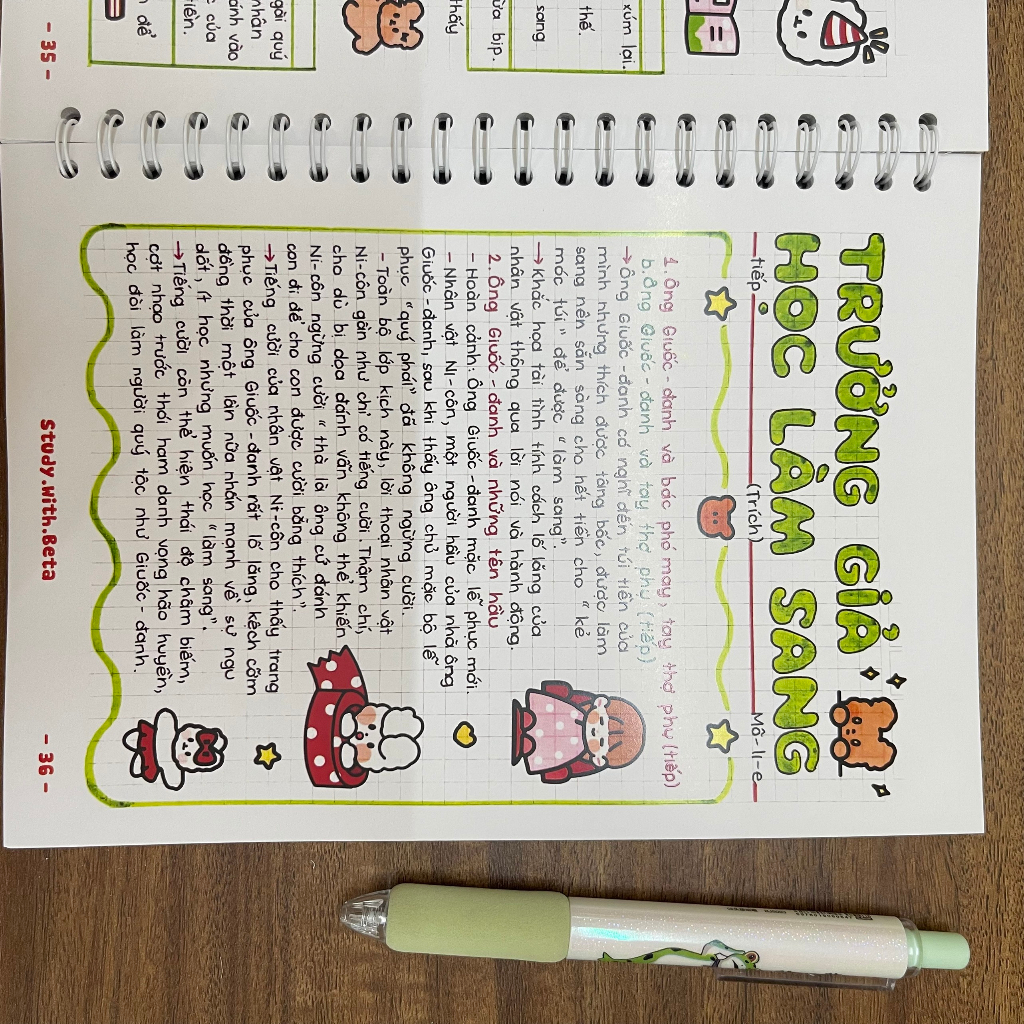 TRƯỞNG GIẢ
HỌC LÀM SANG
tiếp (Trích) Mô-li-e
1. Ông Giuốc-đanh và bác phó may, tay thợ phụ (tiếp)
b. Ông Giuốc-đanh và tay thợ phụ (tiếp)
→ Ông Giuốc-đanh có nghĩ đến túi tiền của
mình nhưng thích được tâng bốc, được làm
sang nên sẵn sàng cho hết tiền cho "kẻ
móc túi" để được "làm sang".
→ Khắc họa tài tình tính cách lố lăng của
nhân vật thông qua lời nói và hành động.
2. Ông Giuốc-đanh và những tên hầu
- Hoàn cảnh: Ông Giuốc-đanh mặc lễ phục mới.
- Nhân vật Ni-côn, một người hầu của nhà ông
Giuốc-đanh, sau khi thấy ông chủ mặc bộ lễ
phục "quý phái" đã không ngừng cười.
- Toàn bộ lớp kịch này, lời thoại nhân vật
Ni-côn gần như chỉ có tiếng cười. Thậm chí,
cho dù bị dọa đánh vẫn không thể khiến
Ni-côn ngừng cười "thà là ông cứ đánh
con đi để cho con được cười bằng thích".
→ Tiếng cười của nhân vật Ni-côn cho thấy trang
phục của ông Giuốc-đanh rất lố lăng, kệch cỡm
đồng thời một lần nữa nhấn mạnh về sự ngu
dốt, ít học nhưng muốn học "làm sang".
→ Tiếng cười còn thể hiện thái độ châm biếm,
cợt nhạo trước thói ham danh vọng hão huyền,
học đòi làm người quý tộc như Giuốc-đanh.
Study.With.Beta
- 36 -
xúm lại.
thế.
sang
ừa bịp.
thấy
gài quý
nhân
ánh vào
c của
tiền.
để
- 35 -